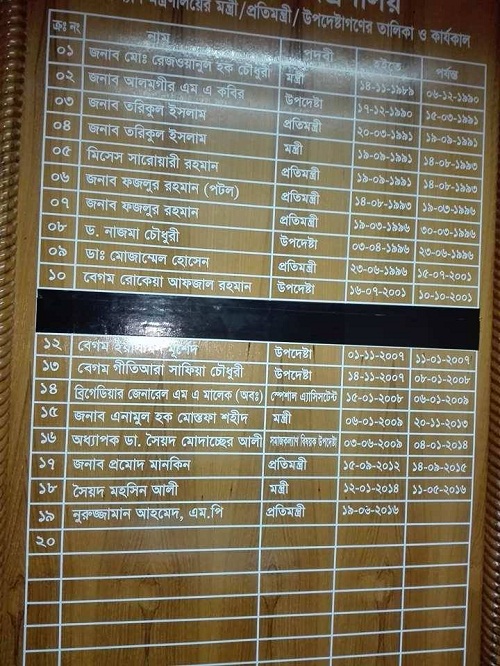 মন্ত্রণালয়ের মন্ত্রী/প্রতিমন্ত্রী/ উপদেষ্টাগণের তালিকা ও কার্যকাল
ক্রঃ নং নাম পদবী হইতে পর্যন্ত
০১ জনাব মোঃ রেজওয়ানুল হক চৌধুরী মন্ত্রী ১৪-১১-১৯৮৯ ০৬-১২-১৯৯০
০২ জনাব আলমগীর এম এ কবির উপদেষ্টা ১৭-১২-১৯৯০ ১৫-০৩-১৯৯১
০৩ জনাব তরিকুল ইসলাম প্রতিমন্ত্রী ২০-০৩-১৯৯১ ১৯-০৯-১৯৯১
০৪ জনাব তরিকুল ইসলাম মন্ত্রী ১৯-০৯-১৯৯১ ১৪-০৮-১৯৯৩
০৫ মিসেস সারোয়ারী রহমান প্রতিমন্ত্রী ১৯-০৯-১৯৯১ ১৪-০৮-১৯৯৩
০৬ জনাব ফজলুর রহমান (পটল) প্রতিমন্ত্রী ১৪-০৮-১৯৯৩ ১৯-০৩-১৯৯৬
০৭ জনাব ফজলুর রহমান প্রতিমন্ত্রী ১৯-০৩-১৯৯৬ ৩০-০৩-১৯৯৬
০৮ ড. নাজমা চৌধুরী উপদেষ্টা ০৩-০৪-১৯৯৬ ২৩-০৬-১৯৯৬
০৯ ডাঃ মোজাম্মেল হোসেন প্রতিমন্ত্রী ২৩-০৬-১৯৯৬ ১৫-০৭-২০০১
১০ বেগম রোকেয়া আফজাল রহমান উপদেষ্টা ১৬-০৭-২০০১ ১০-১০-২০০১
১২ বেগম উপদেষ্টা ০১-১১-২০০৭ ১১-০১-২০০৭
১৩ বেগম গীতিআরা সাফিয়া চৌধুরী উপদেষ্টা ১৪-১১-২০০৭ ০৮-০১-২০০৮
১৪ ব্রিগেডিয়ার জেনারেল এম এ মালেক (অবঃ) স্পেশাল এ্যাসিসটেন্ট ১৫-০১-২০০৮ ০৬-০১-২০০৯
১৫ জনাব এনামুল হক মোস্তফা শহীদ মন্ত্রী ০৬-০১-২০০৯ ২০-১১-২০১৩
১৬ অধ্যাপক ডা. সৈয়দ মোদাচ্ছের আলী সমাজকল্যাণ বিষয়ক উপদেষ্টা ০৩-০৬-২০০৯ ০৪-০১-২০১৪
১৭ জনাব প্রমোদ মানকিন প্রতিমন্ত্রী ১৫-০৯-২০১২ ১৪-০৯-২০১৫
১৮ সৈয়দ মহসিন আলী মন্ত্রী ১২-০১-২০১৪ ১১-০৫-২০১৬
১৯ নুরুজ্জামান আহমেদ, এম.পি প্রতিমন্ত্রী ১৯-০৬-২০১৬
২০